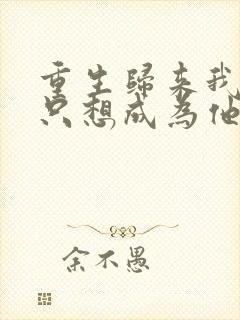 重生歸来我
只想成為他
余不愚